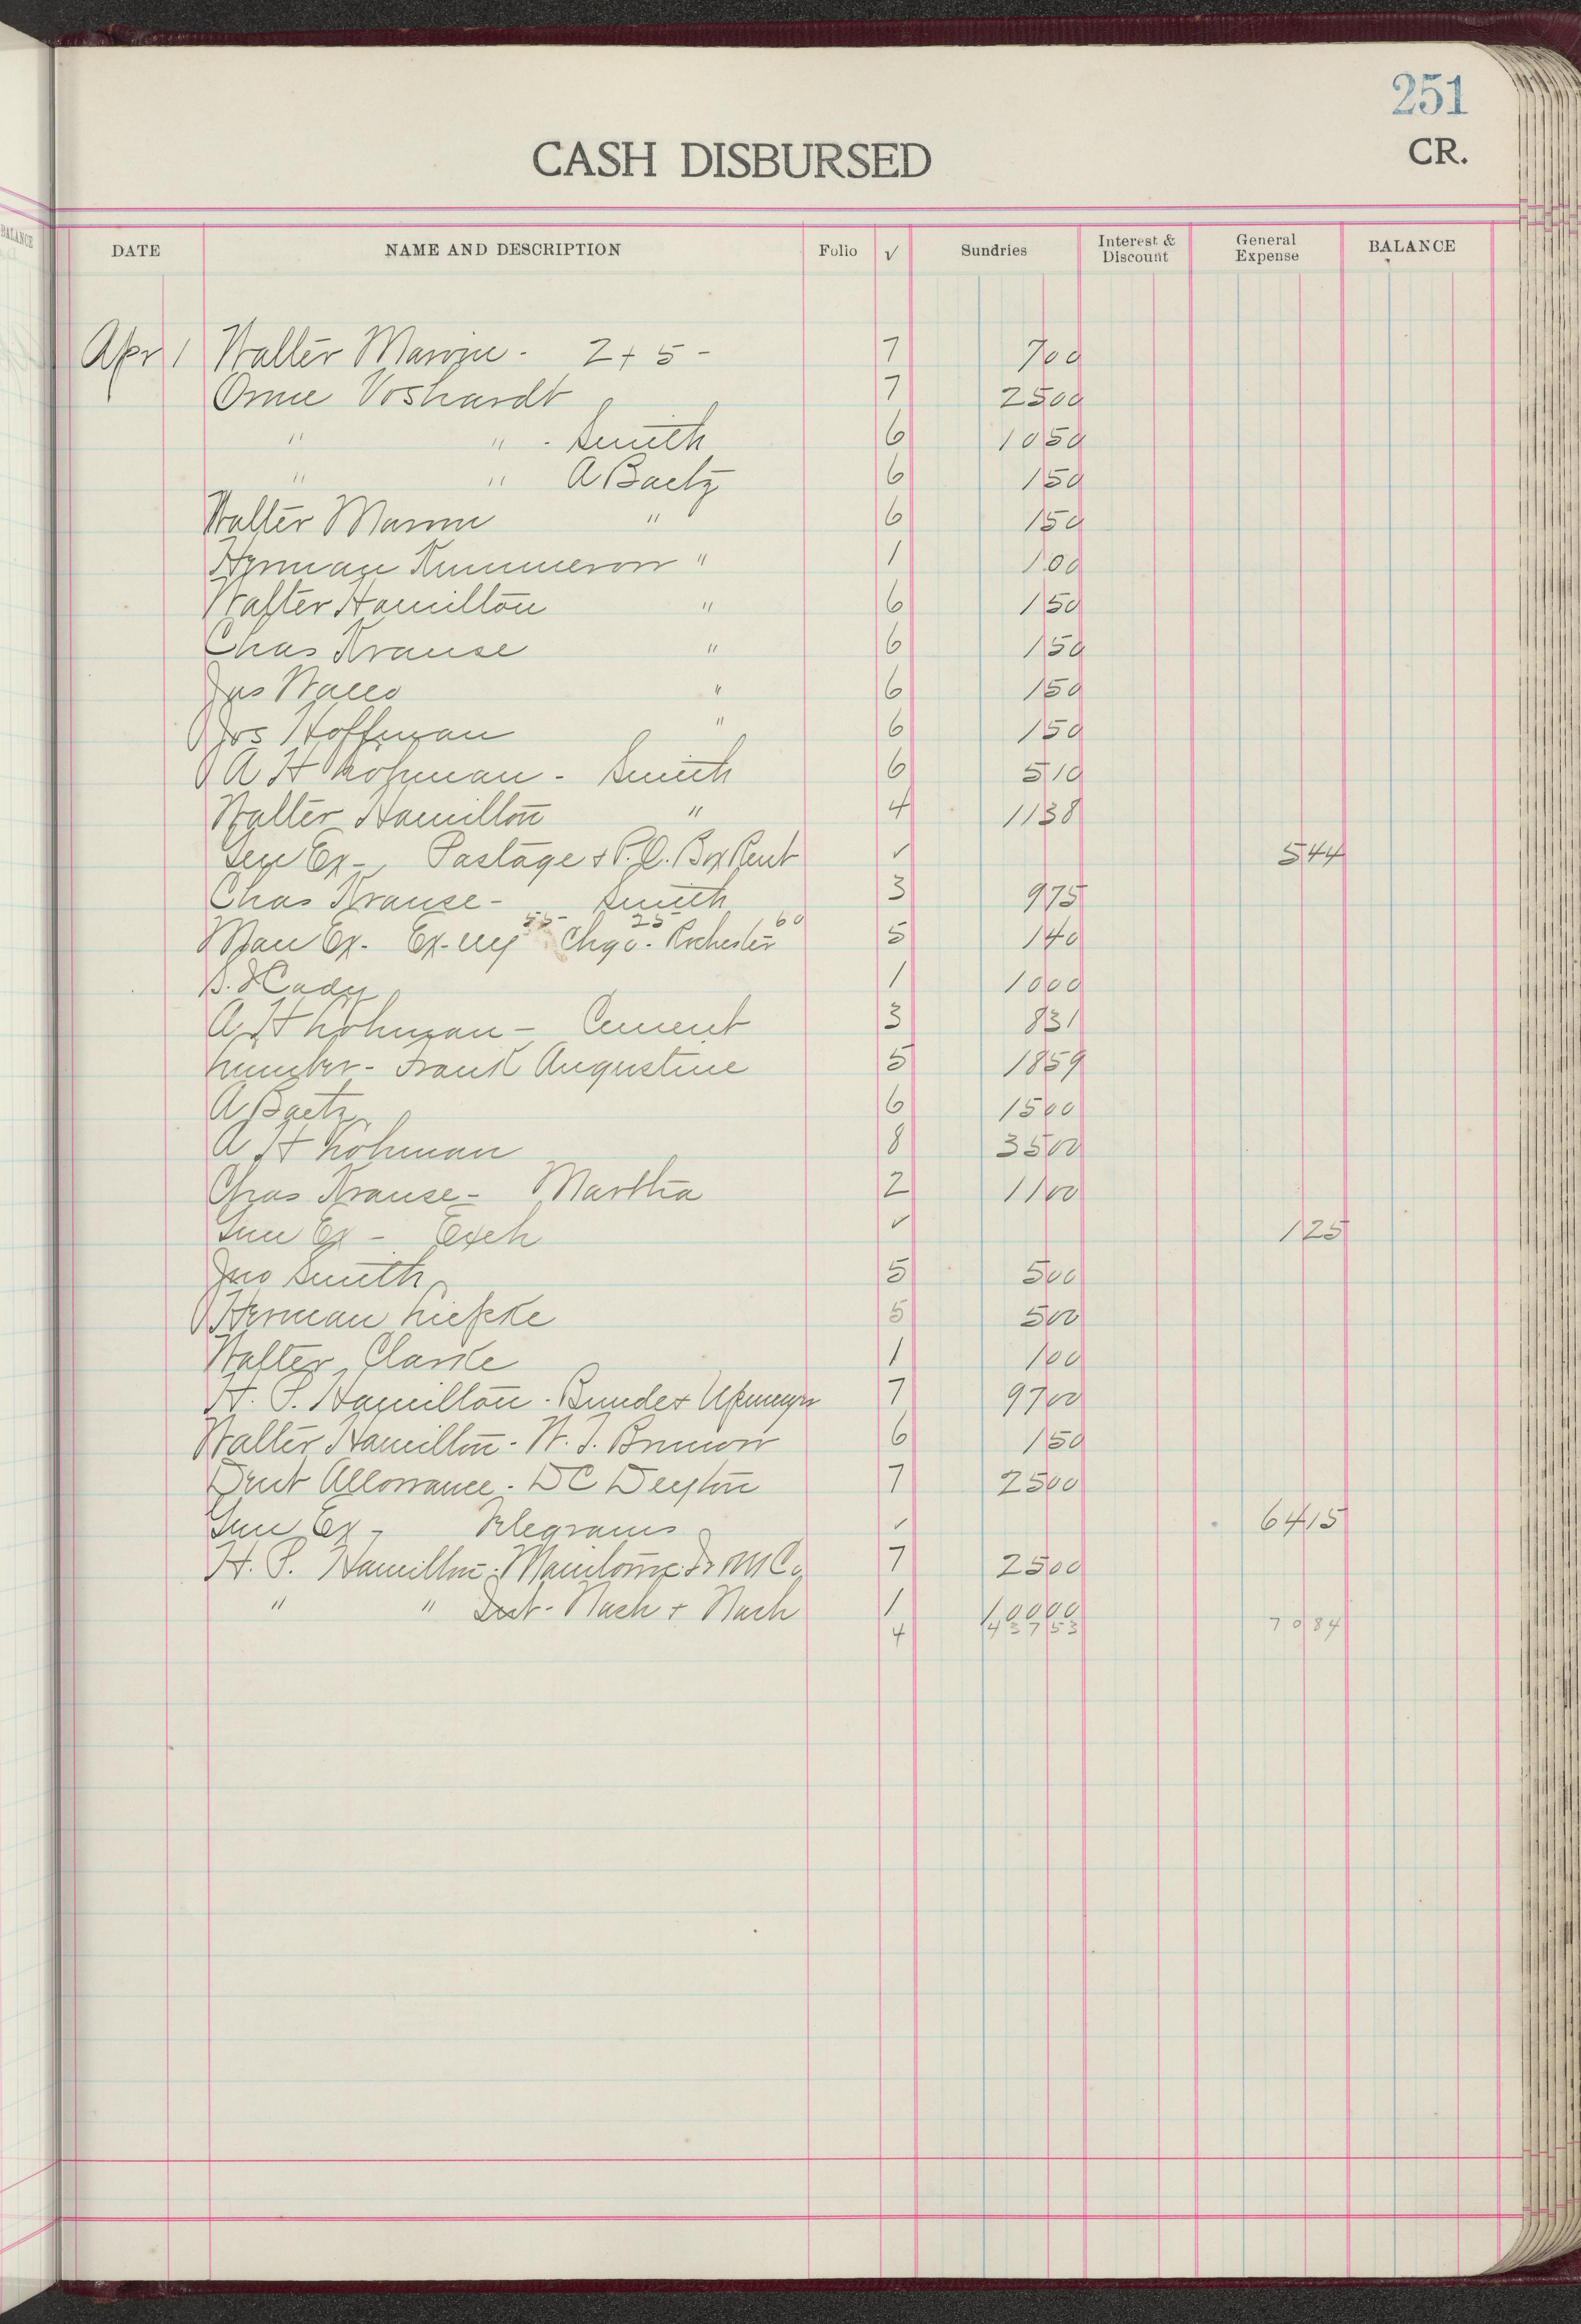 251
CASH DISBURSED CR.
BALANCE
DATE NAME AND DESCRIPTION Folio √ Sundries Interest & Discount General Expense BALANCE
Apr 1 Walter 2 + 5 - 7 7 00
Voshardt 7 25 00
" " - Smith 6 10 50
" " A Baetz 6 1 50
Walter " 6 1 50
Herman " 1 1 00
Walter Hamilton " 6 1 50
Chas Krause " 6 1 50
Jas " 6 1 50
Jos Hoffman " 6 1 50
A H Lohman - Smith 6 5 10
Walter Hamilton " 4 11 38
Gen Ex - Postage + P.O. Box Rent ✓ 5 44
Chas Krause - Smith 3 9 75
Man Ex - Ex - 55 Chgo - 25 Rochester 60 5 1 40
S. Cady 1 10 00
A H Lohman - Cement 3 8 31
Lumber - Frank Augustine 5 18 59
A Baetz 6 15 00
A H Lohman 8 35 00
Chas Krause - Martha 2 11 00
Gen Ex - Exch ✓ 1 25
Jno Smith 5 5 00
Herman Liepke 5 5 00
Walter Clarke 1 1 00
H. P. Hamilton - Bunde + Upmeyer 7 97 00
Walter Hamilton - W. 6 1 50
Allowance - D C 7 25 00
Gen Ex - Telegrams ✓ 64 15
H. P. Hamilton - Co 7 25 00
" " Nash + Nash 1 100 00
4 437 53 70 84